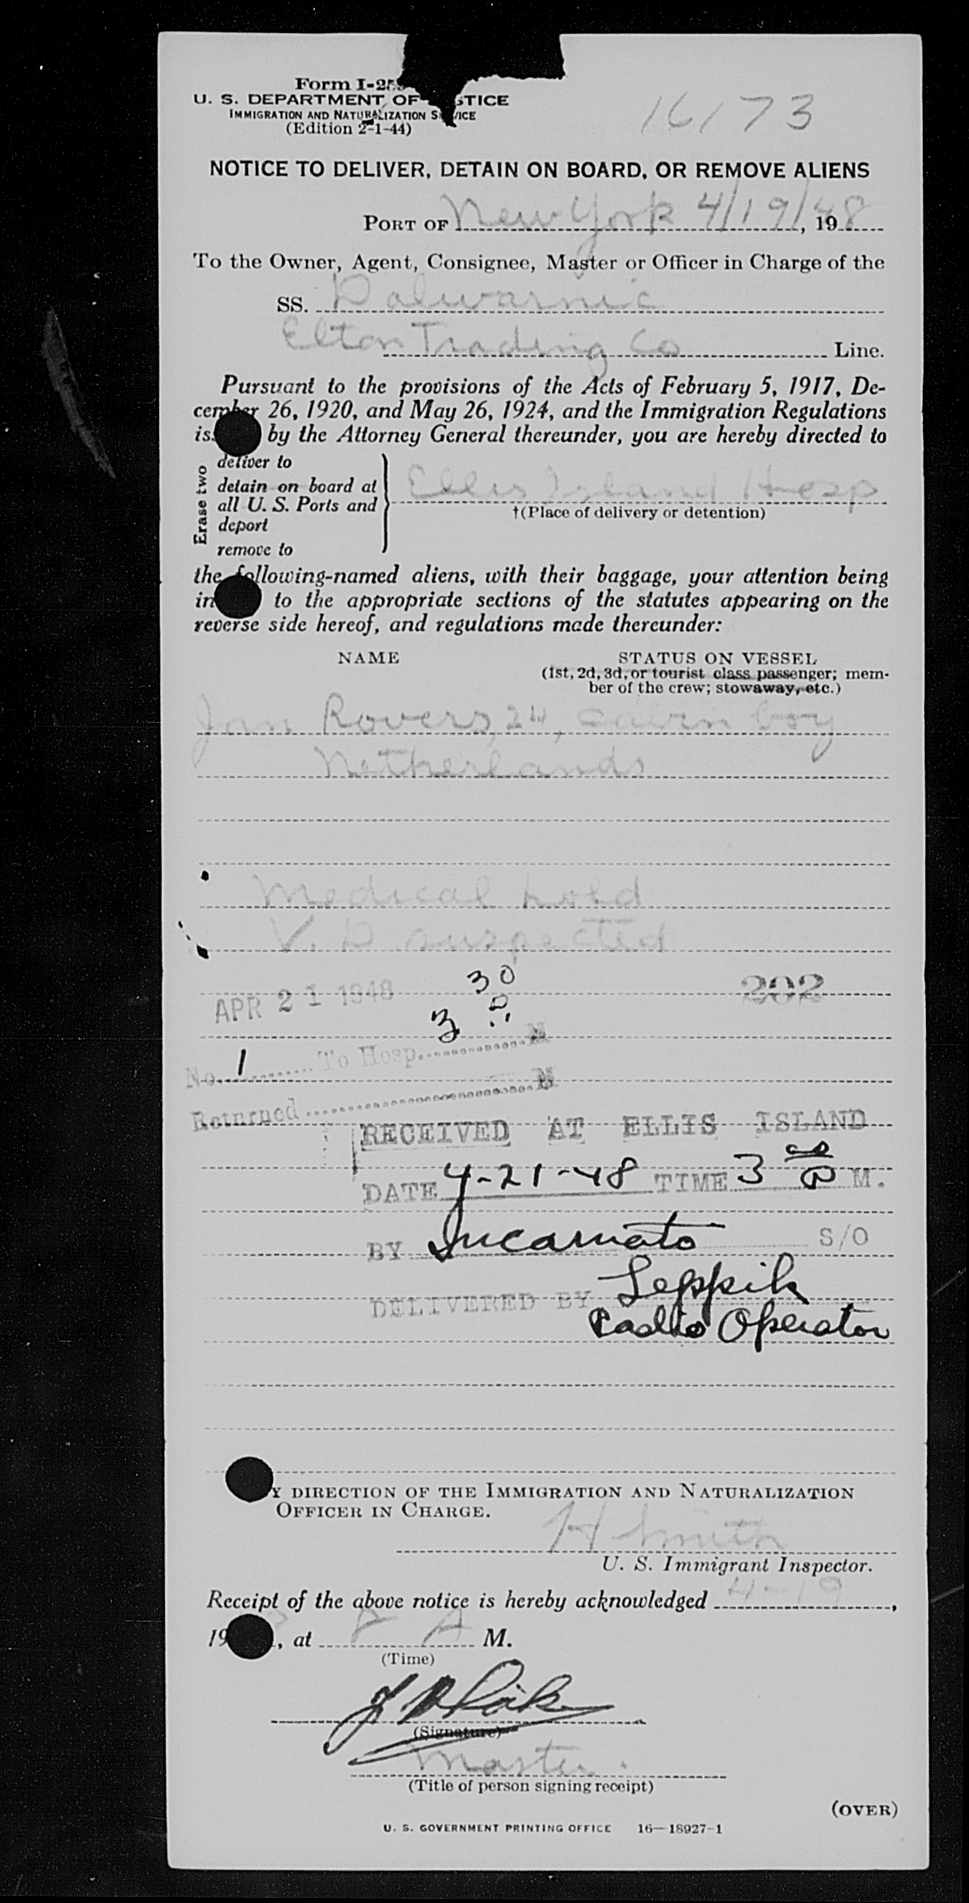 Form I-259
U. S. DEPARTMENT OF JUSTICE
IMMIGRATION AND NATURALIZATION SERVICE
(Edition 2-1-44)
16173
NOTICE TO DELIVER, DETAIN ON BOARD, OR REMOVE ALIENS
PORT OF New York 4/19/48, 1948
To the Owner, Agent, Consignee, Master or Officer in Charge of the
SS. Dalwarnic
Elton Trading Co Line.
Pursuant to the provisions of the Acts of February 5, 1917, De-
cember 26, 1920, and May 26, 1924, and the Immigration Regulations
by the Attorney General thereunder, you are hereby directed to
Erase two
deliver to
detain on board at
all U. S. Ports and
deport
remove to
Ellis Island Hosp
†(Place of delivery or detention)
the following-named aliens, with their baggage, your attention being
to the appropriate sections of the statutes appearing on the
reverse side hereof, and regulations made thereunder:
NAME
STATUS ON VESSEL
(1st, 2d, 3d, or tourist class passenger; mem-
ber of the crew; stowaway, etc.)
Jan Rovers, 24, cabin boy
Netherlands
Medical hold
V. D suspected
APR 21 1948
3 30
202
3
No. 1 To Hosp. M
Returned M
RECEIVED AT ELLIS ISLAND
DATE 4-21-48 TIME 3 00 P M.
BY Incarnato S/O
DELIVERED BY Leppik
Radio Operator
BY DIRECTION OF THE IMMIGRATION AND NATURALIZATION
OFFICER IN CHARGE.
H Smith
U. S. Immigrant Inspector.
Receipt of the above notice is hereby acknowledged 4-19,
19, at A M.
(Time)
(Signature)
Master.
(Title of person signing receipt)
(OVER)
U. S. GOVERNMENT PRINTING OFFICE 16—18927-1